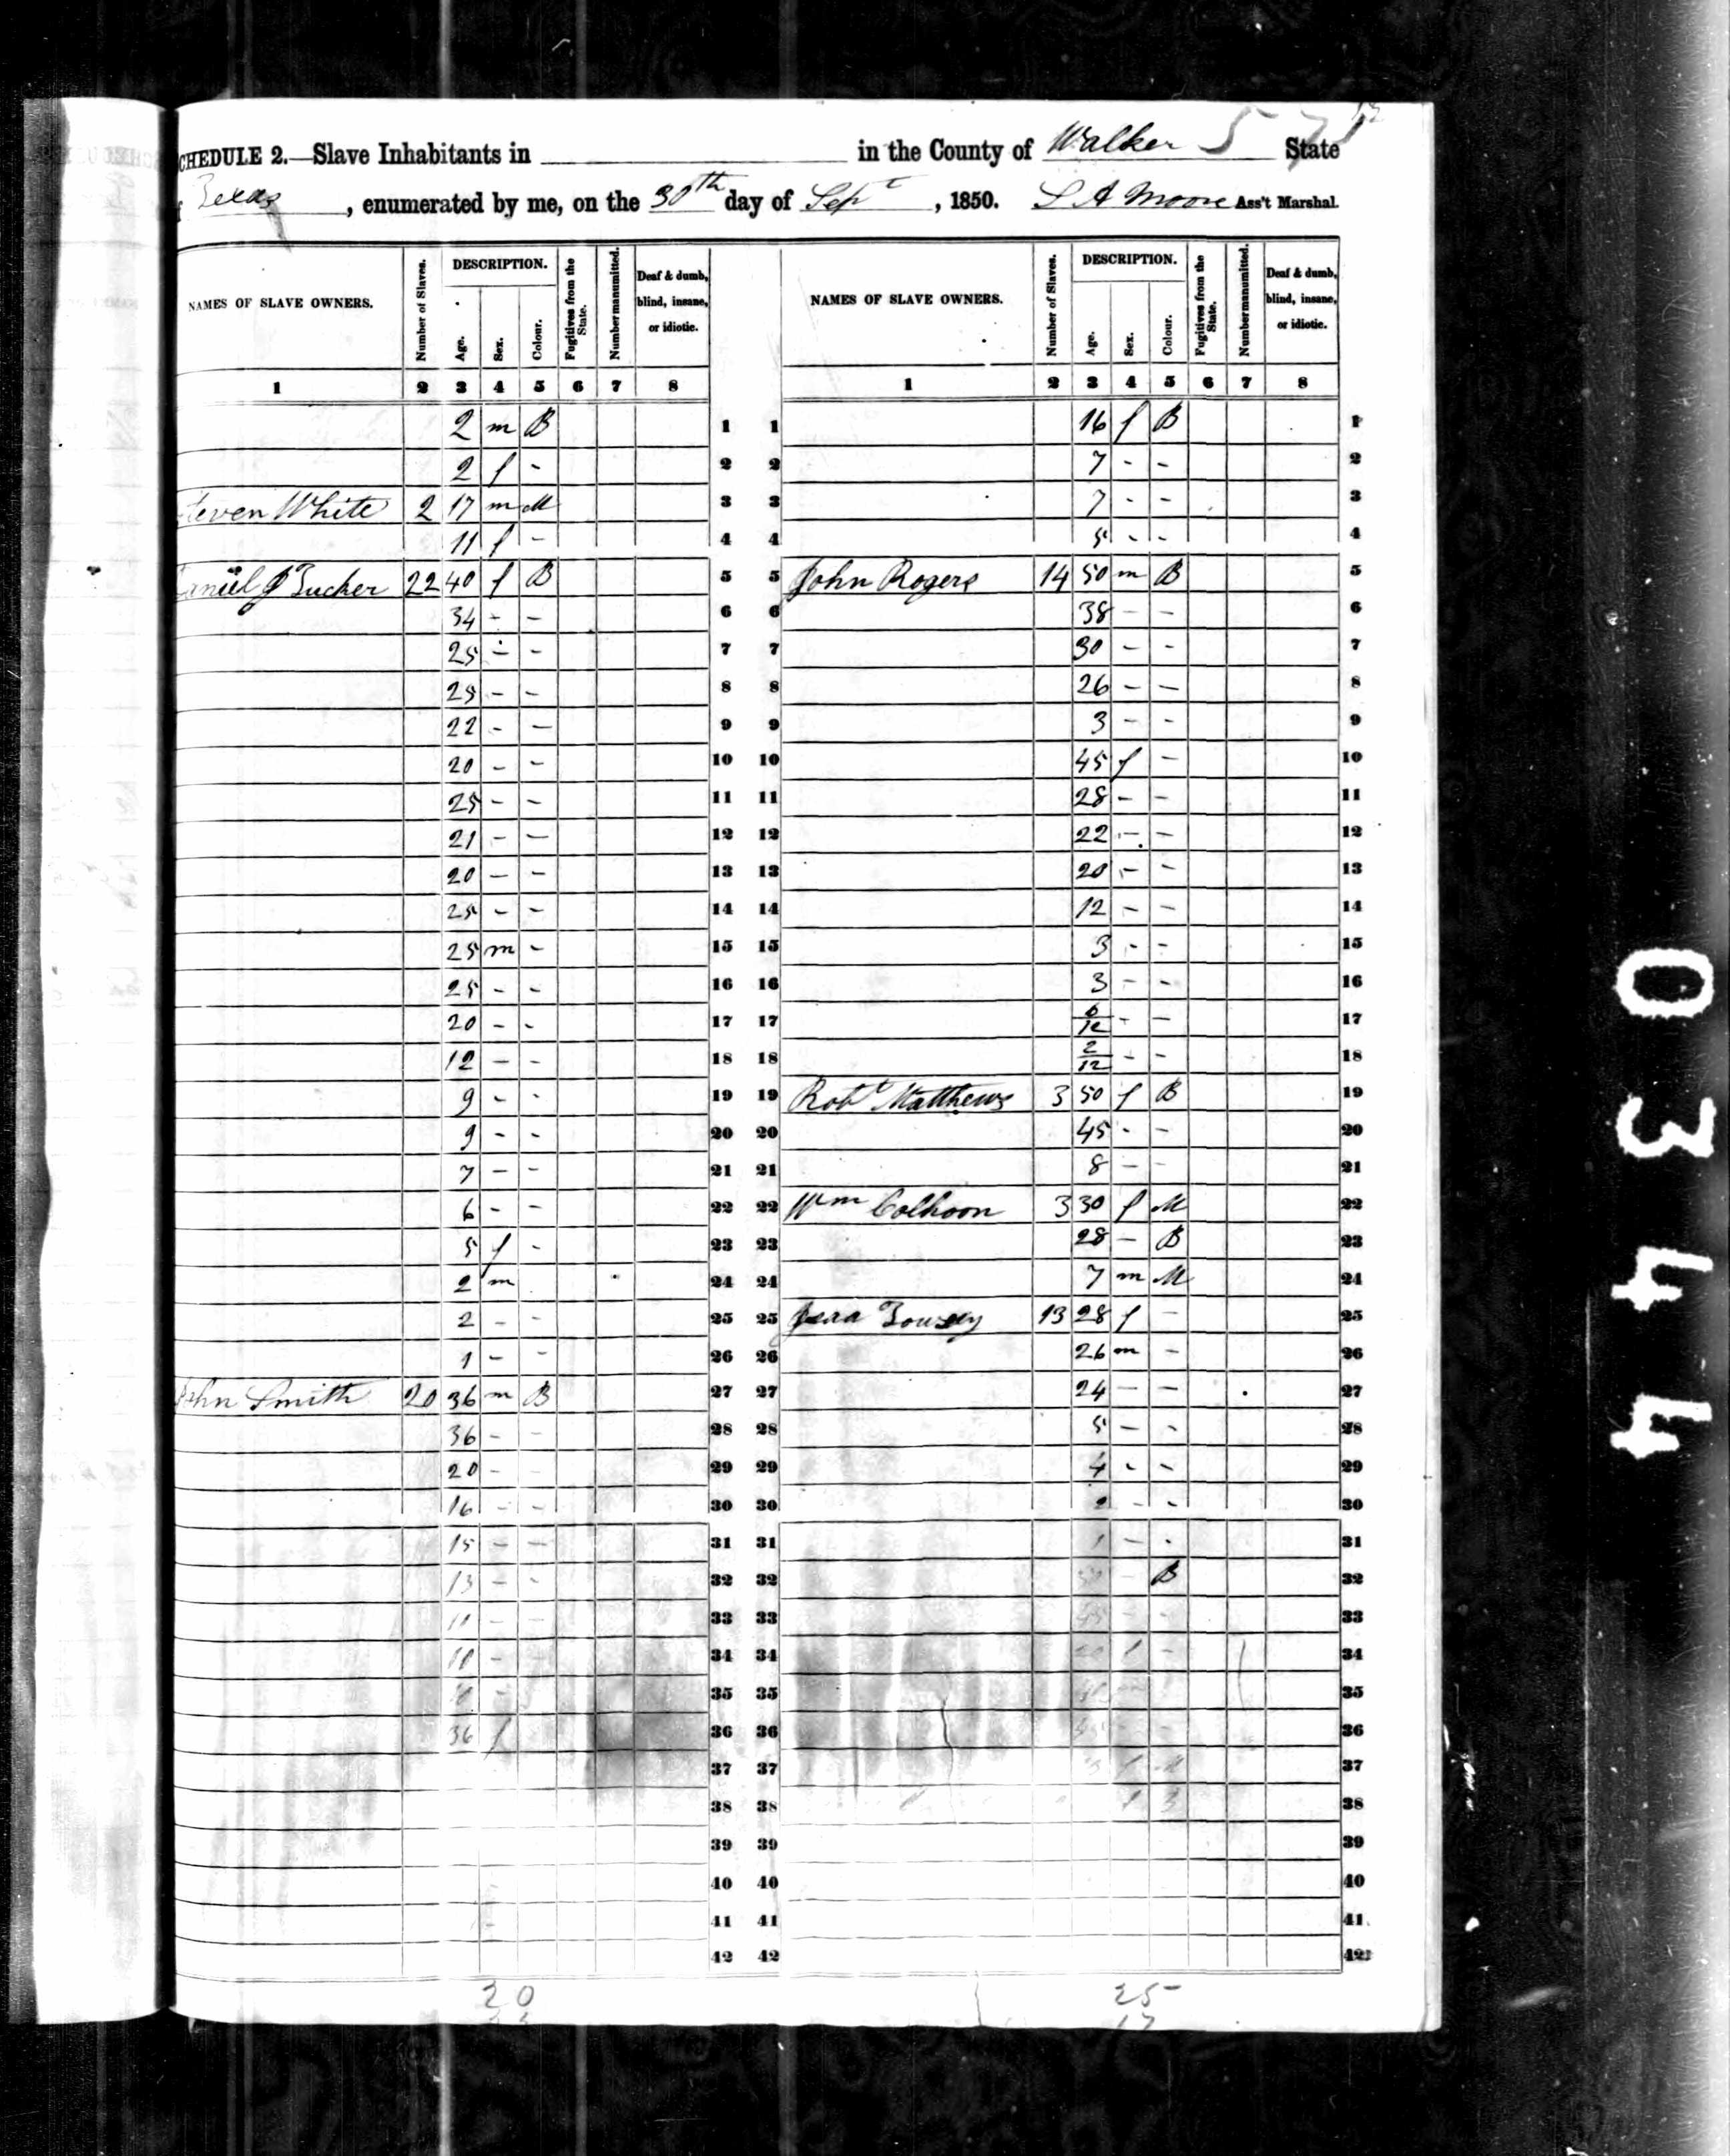 SCHEDULE 2.—Slave Inhabitants in in the County of Walker State
Texas, enumerated by me, on the 30th day of Sept, 1850. S A Moore Ass't Marshal.
NAMES OF SLAVE OWNERS. Number of Slaves. DESCRIPTION. Age. Sex. Colour. Fugitives from the State. Number manumitted. Deaf & dumb, blind, insane, or idiotic. NAMES OF SLAVE OWNERS. Number of Slaves. DESCRIPTION. Age. Sex. Colour. Fugitives from the State. Number manumitted. Deaf & dumb, blind, insane, or idiotic.
1 2 3 4 5 6 7 8 1 2 3 4 5 6 7 8
2 m B 1 1 16 f B 1
2 f - 2 2 7 - - 2
Steven White 2 17 m M 3 3 7 - - 3
11 f - 4 4 5 - - 4
Daniel J Tucker 22 40 f B 5 5 John Rogers 14 50 m B 5
34 - - 6 6 38 - - 6
25 - - 7 7 30 - - 7
25 - - 8 8 26 - - 8
22 - - 9 9 3 - - 9
20 - - 10 10 45 f - 10
25 - - 11 11 28 - - 11
21 - - 12 12 22 - - 12
20 - - 13 13 20 - - 13
25 - - 14 14 12 - - 14
25 m - 15 15 3 - - 15
25 - - 16 16 3 - - 16
20 - - 17 17 6/12 - - 17
12 - - 18 18 2/12 - - 18
9 - - 19 19 Robt Matthews 3 50 f B 19
9 - - 20 20 45 - - 20
7 - - 21 21 8 - - 21
6 - - 22 22 Wm Colhoon 3 30 f M 22
5 f - 23 23 28 - B 23
2 m 24 24 7 m M 24
2 - - 25 25 13 28 f - 25
1 - - 26 26 26 m - 26
John Smith 20 36 m B 27 27 24 - - 27
36 - - 28 28 5 - - 28
20 - - 29 29 4 - - 29
16 - - 30 30 2 - - 30
15 - - 31 31 1 - - 31
13 - - 32 32 - B 32
11 - - 33 33 - - 33
10 - 34 34 f - 34
35 35 35
36 f 36 36 36
37 37 f M 37
38 38 f B 38
39 39 39
40 40 40
41 41 41
42 42 42
20 25
0344